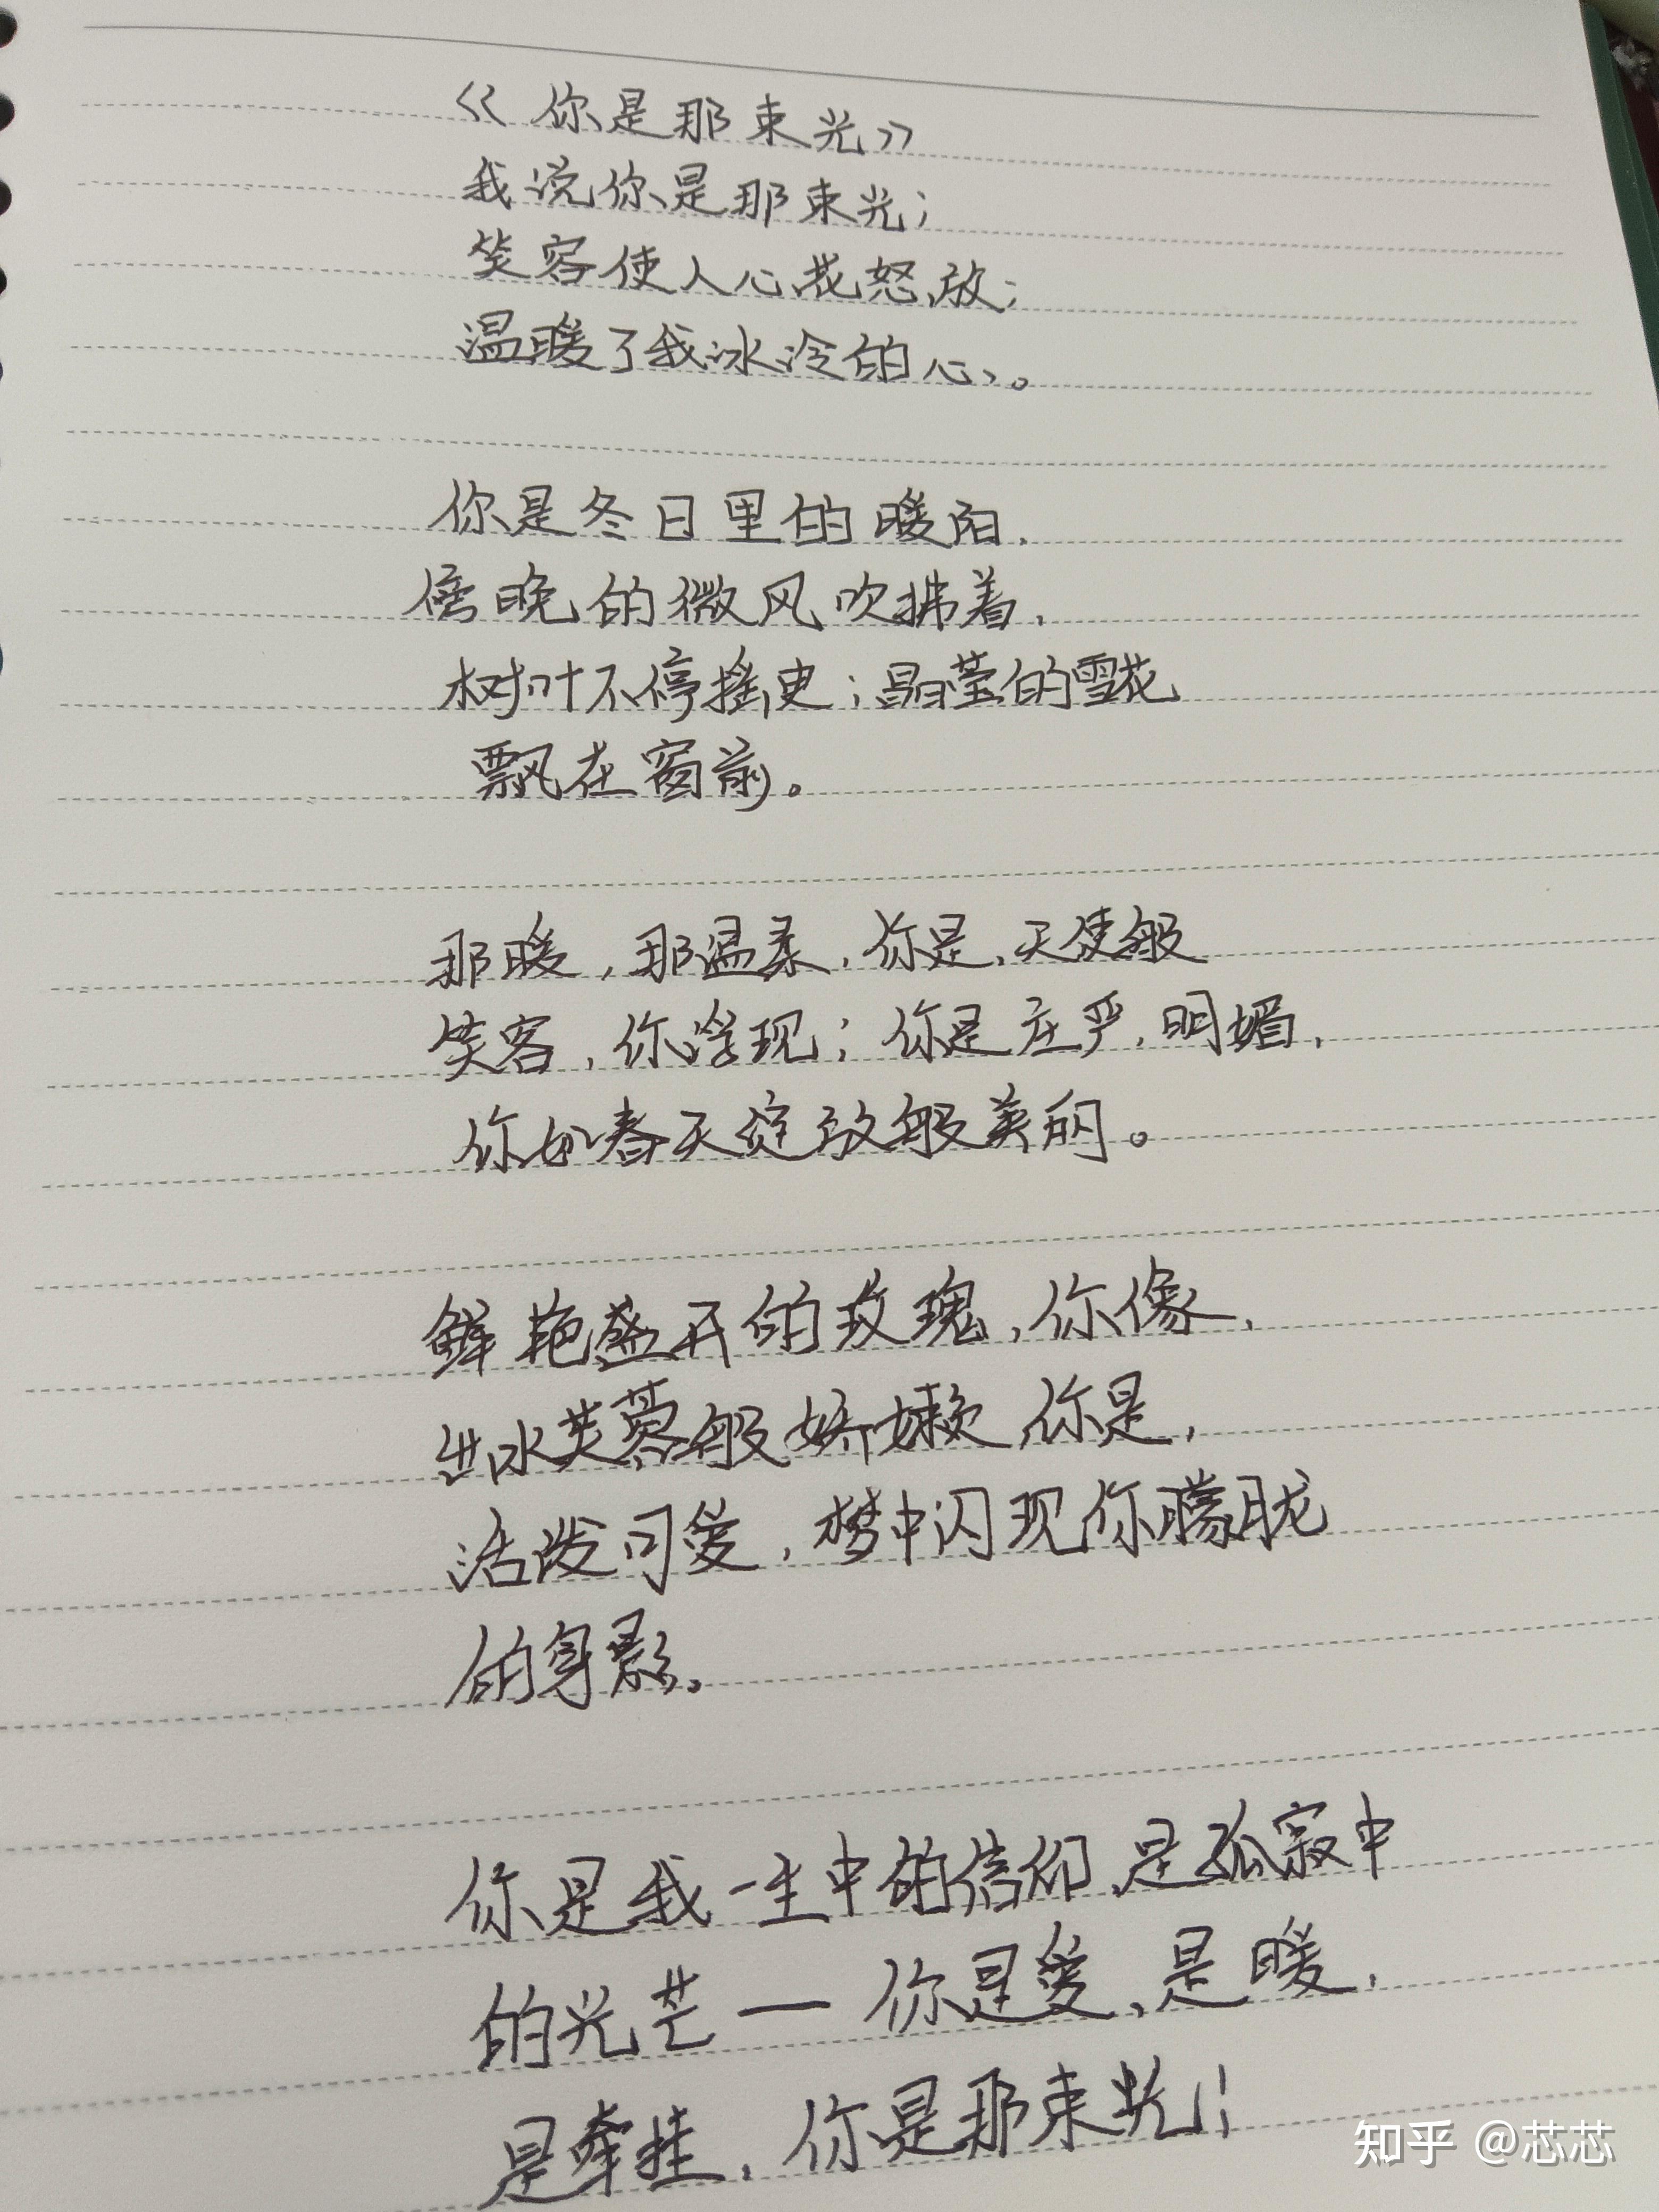 《你是那束光》
我说你是那束光;
笑容使人心花怒放;
温暖了我冰冷的心、。
你是冬日里的暖阳,
傍晚的微风吹拂着,
树叶不停摇曳;晶莹的雪花
飘在窗前。
那暖,那温柔,你是,天使般
笑容,你浮现;你是庄严,明媚,
你如春天绽放般美丽。
鲜艳盛开的玫瑰,你像,
出水芙蓉般娇嫩,你是,
活泼可爱,梦中闪现你朦胧
的身影。
你是我一生中的信仰,是孤寂中
的光芒一你是爱,是暖,
是牵挂,你是那束光!
知乎 @芯芯